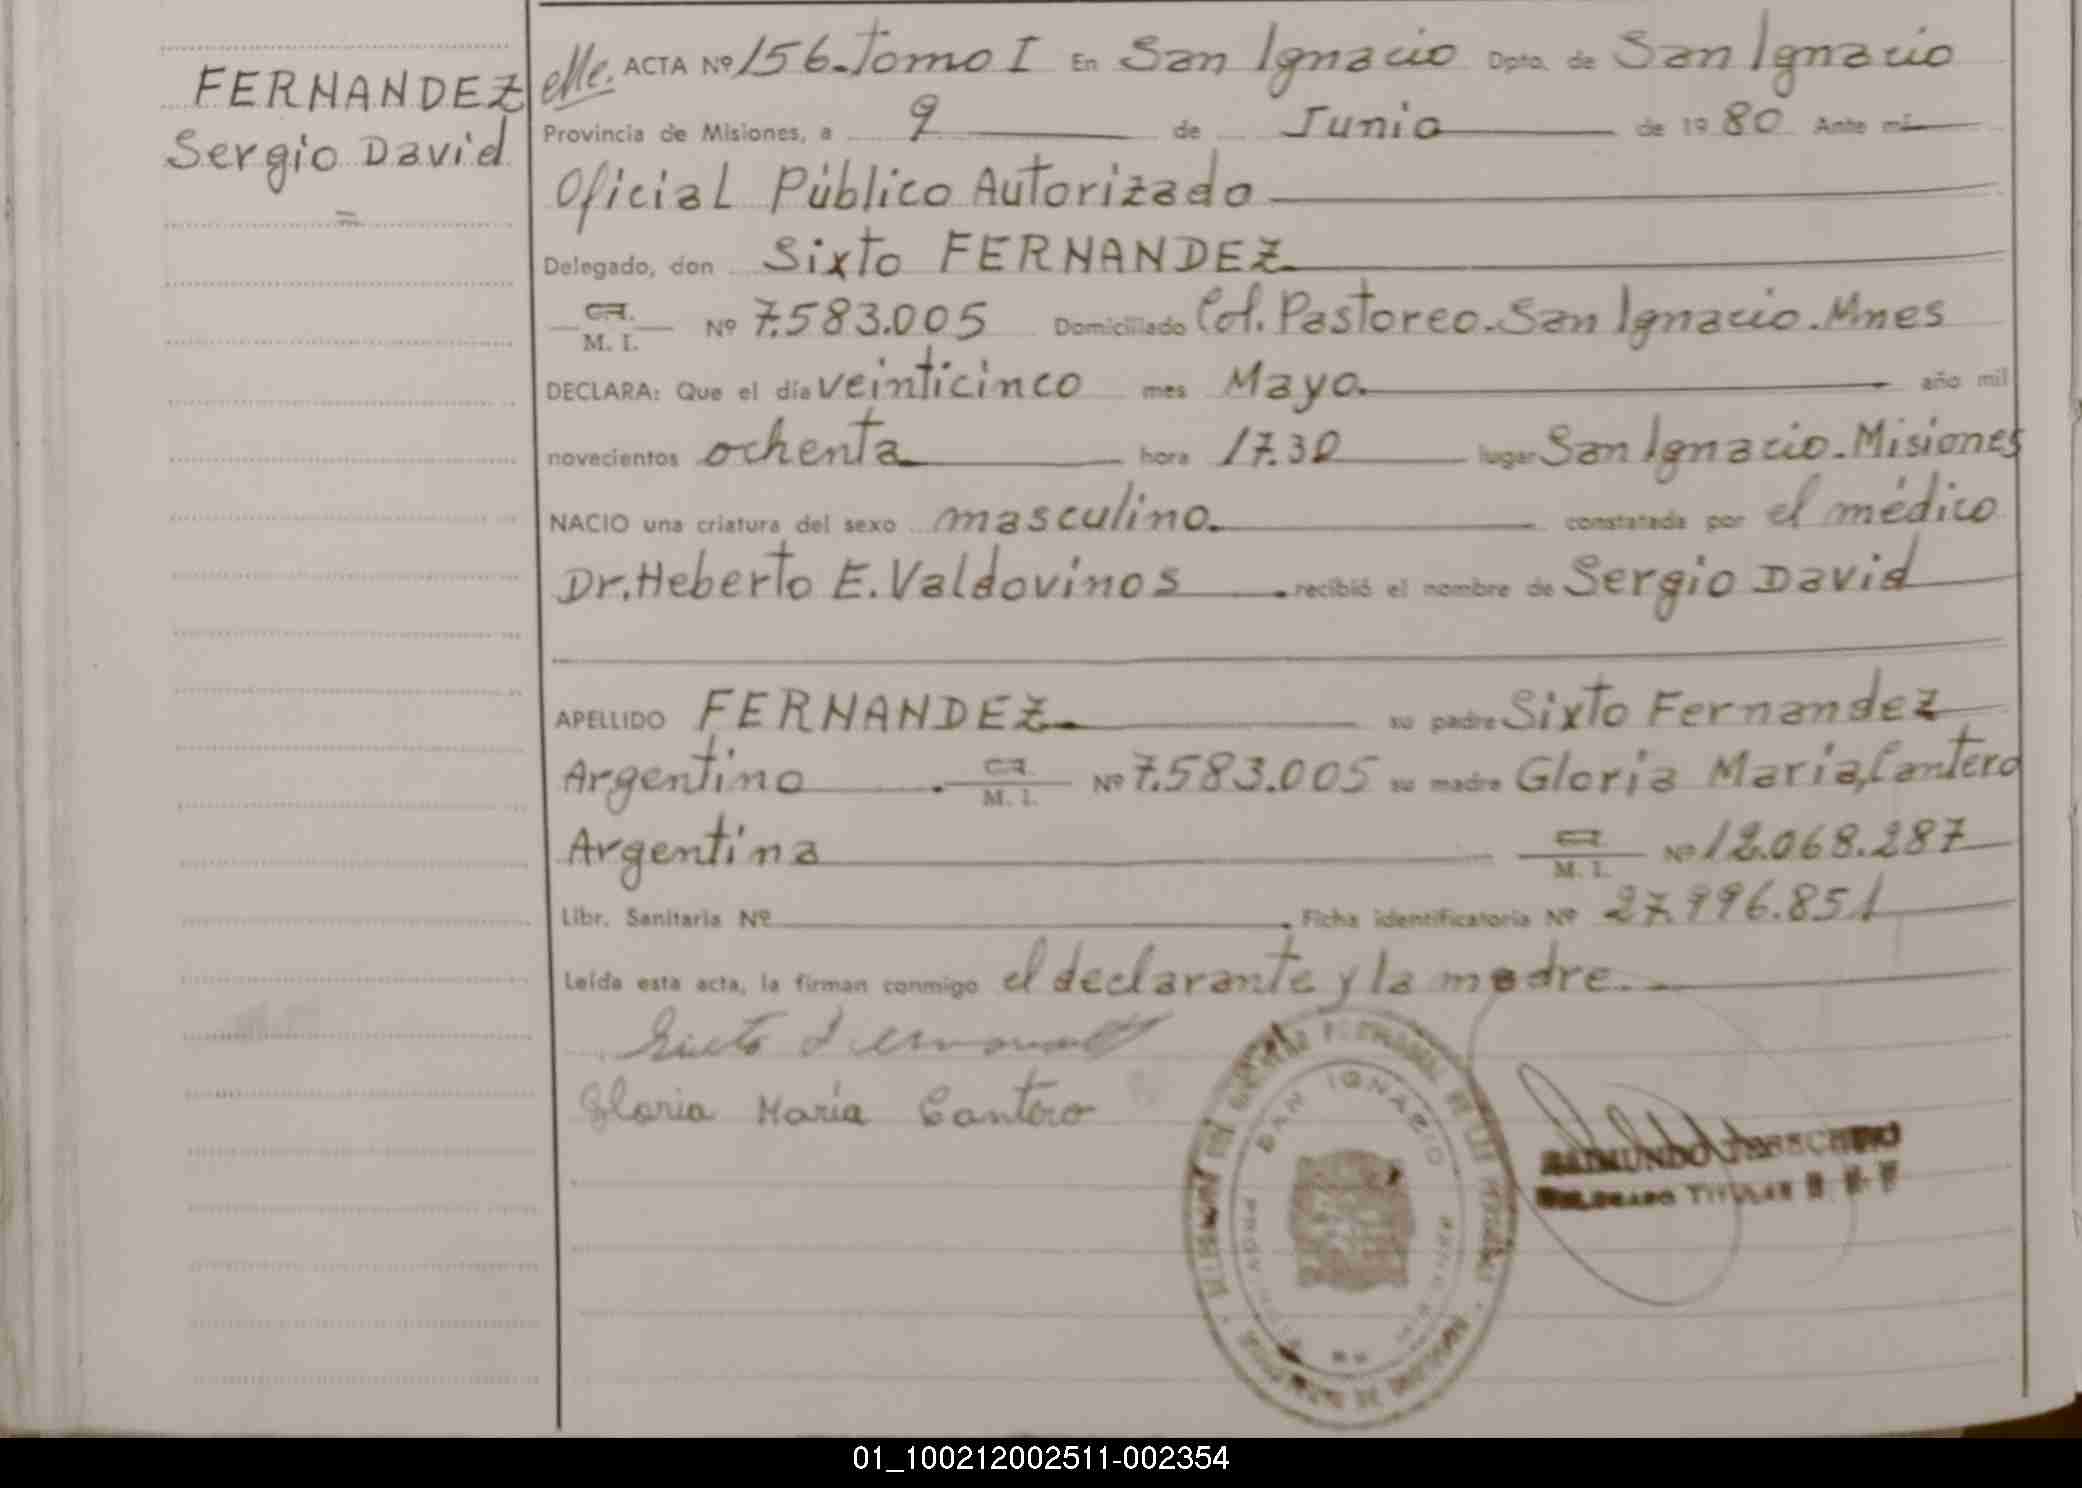 FERNANDEZ
Sergio David
=
ACTA Nº 156.Tomo I En San Ignacio Dpto. de San Ignacio
Provincia de Misiones, a 9 de Junio de 1980 Ante mi
Oficial Público Autorizado
Delegado, don Sixto FERNANDEZ
M. I. Nº 7.583.005 Domiciliado Col. Pastoreo.San Ignacio.Mnes
DECLARA: Que el día veinticinco mes Mayo. año mil
novecientos ochenta hora 17.30 lugar San Ignacio.Misiones
NACIO una criatura del sexo masculino. constatada por el médico
Dr.Heberto E.Valdovinos recibió el nombre de Sergio David
APELLIDO FERNANDEZ su padre Sixto Fernandez
Argentino. M. I. Nº 7.583.005 su madre Gloria Maria,Cantero
Argentina M. I. Nº 12.068.287
Libr. Sanitaria Nº Ficha identificatoria Nº 27.996.851
Leída esta acta, la firman conmigo el declarante y la madre.
Gloria María Cantero
SAN IGNACIO
RAIMUNDO
DELEGADO TITULAR
01_100212002511-002354